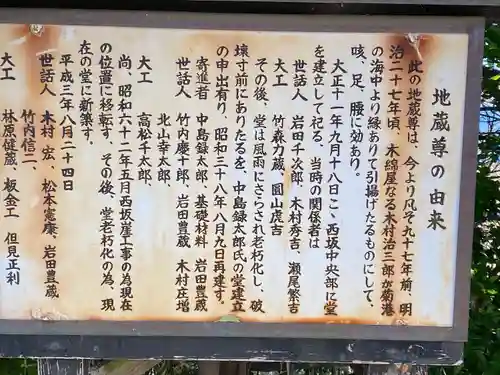 地蔵尊の由来
此の地蔵尊は、今より凡そ九十七年前、明
治二十七年頃、木綿屋なる木村治三郎が菊港
の海中より縁ありて引揚げたるものにして、
咳、足、腰に効あり。
大正十一年九月十八日こゝ西坂中央部に堂
を建立して祀る、当時の関係者は
世話人 岩田千次郎、木村秀吉、瀬尾繁吉
大工 竹森刀蔵、圓山虎吉
その後、堂は風雨にさらされ老朽化し、破
壊寸前にありたるを、中島録太郎氏の堂建立
の申出有り、昭和三十八年八月九日再建す。
寄進者 中島録太郎、基礎材料 岩田豊蔵
世話人 竹内慶十郎、岩田豊蔵 木村庄増
北山幸太郎、
大工 高松千太郎、
尚、昭和六十二年五月西坂崖工事の為現在
の位置に移転す、その後、堂老朽化の為、現
在の堂に新築す。
平成三年八月二十四日
世話人 木村宏、松本憲康、岩田豊蔵
竹内信二、
大工 林原健蔵、板金工 但見正利